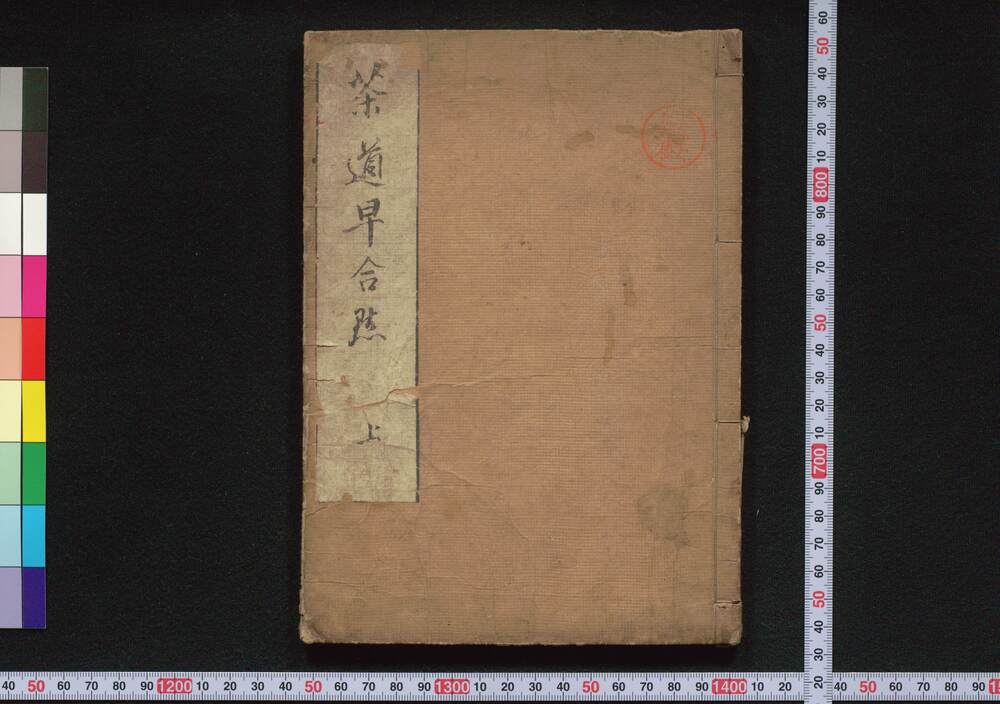 茶道早合点 上
60
50
40
30
20
10
800
90
80
70
60
50
40
30
20
10
700
90
80
70
60
50
40
30
20
40 50 60 70 80 90 1200 10 20 30 40 50 60 70 80 90 1300 10 20 30 40 50 60 70 80 90 1400 10 20 40 50 60 70 80 90